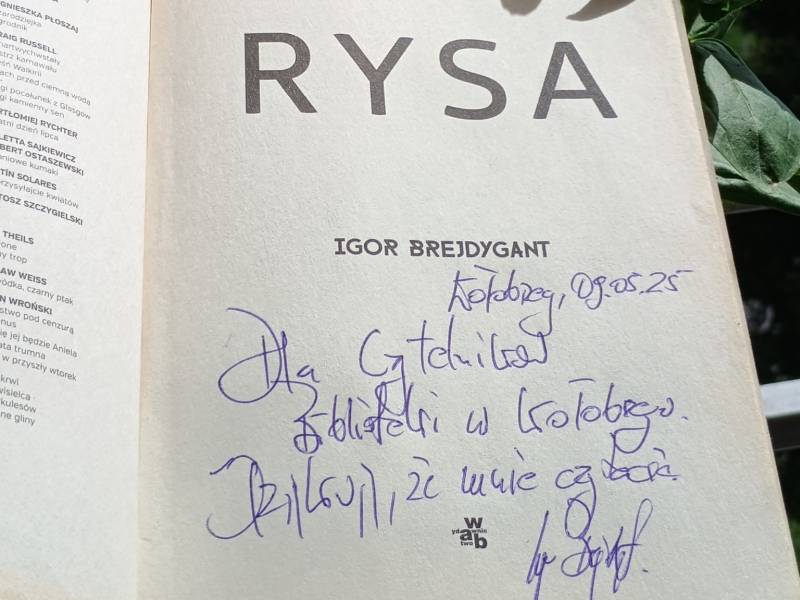 GNIESZKA PŁOSZAJ
zarodziejka
grodnik
RAIG RUSSELL
hartwychwstały
strz karnawału
eśń Walkirii
ach przed ciemną wodą
gi pocałunek z Glasgow
gi kamienny sen
RTŁOMIEJ RYCHTER
atni dzień lipca
LETTA SAJKIEWICZ
BERT OSTASZEWSKI
aniowe kumaki
TÍN SOLARES
rzysyłajcie kwiatów
TOSZ SZCZYGIELSKI
THEILS
one
y trop
AW WEISS
wódka, czarny ptak
N WROŃSKI
stwo pod cenzurą
nus
ię jej będzie Aniela
ata trumna
w przyszły wtorek
krwi
wisielca
kulesów
ne gliny
RYSA
IGOR BREJDYGANT
Kołobrzeg, 09.05.25
Dla Czytelników
Biblioteki w Kołobrzegu.
Dziękuję, że mnie czytacie.
wydawnictwo
wab